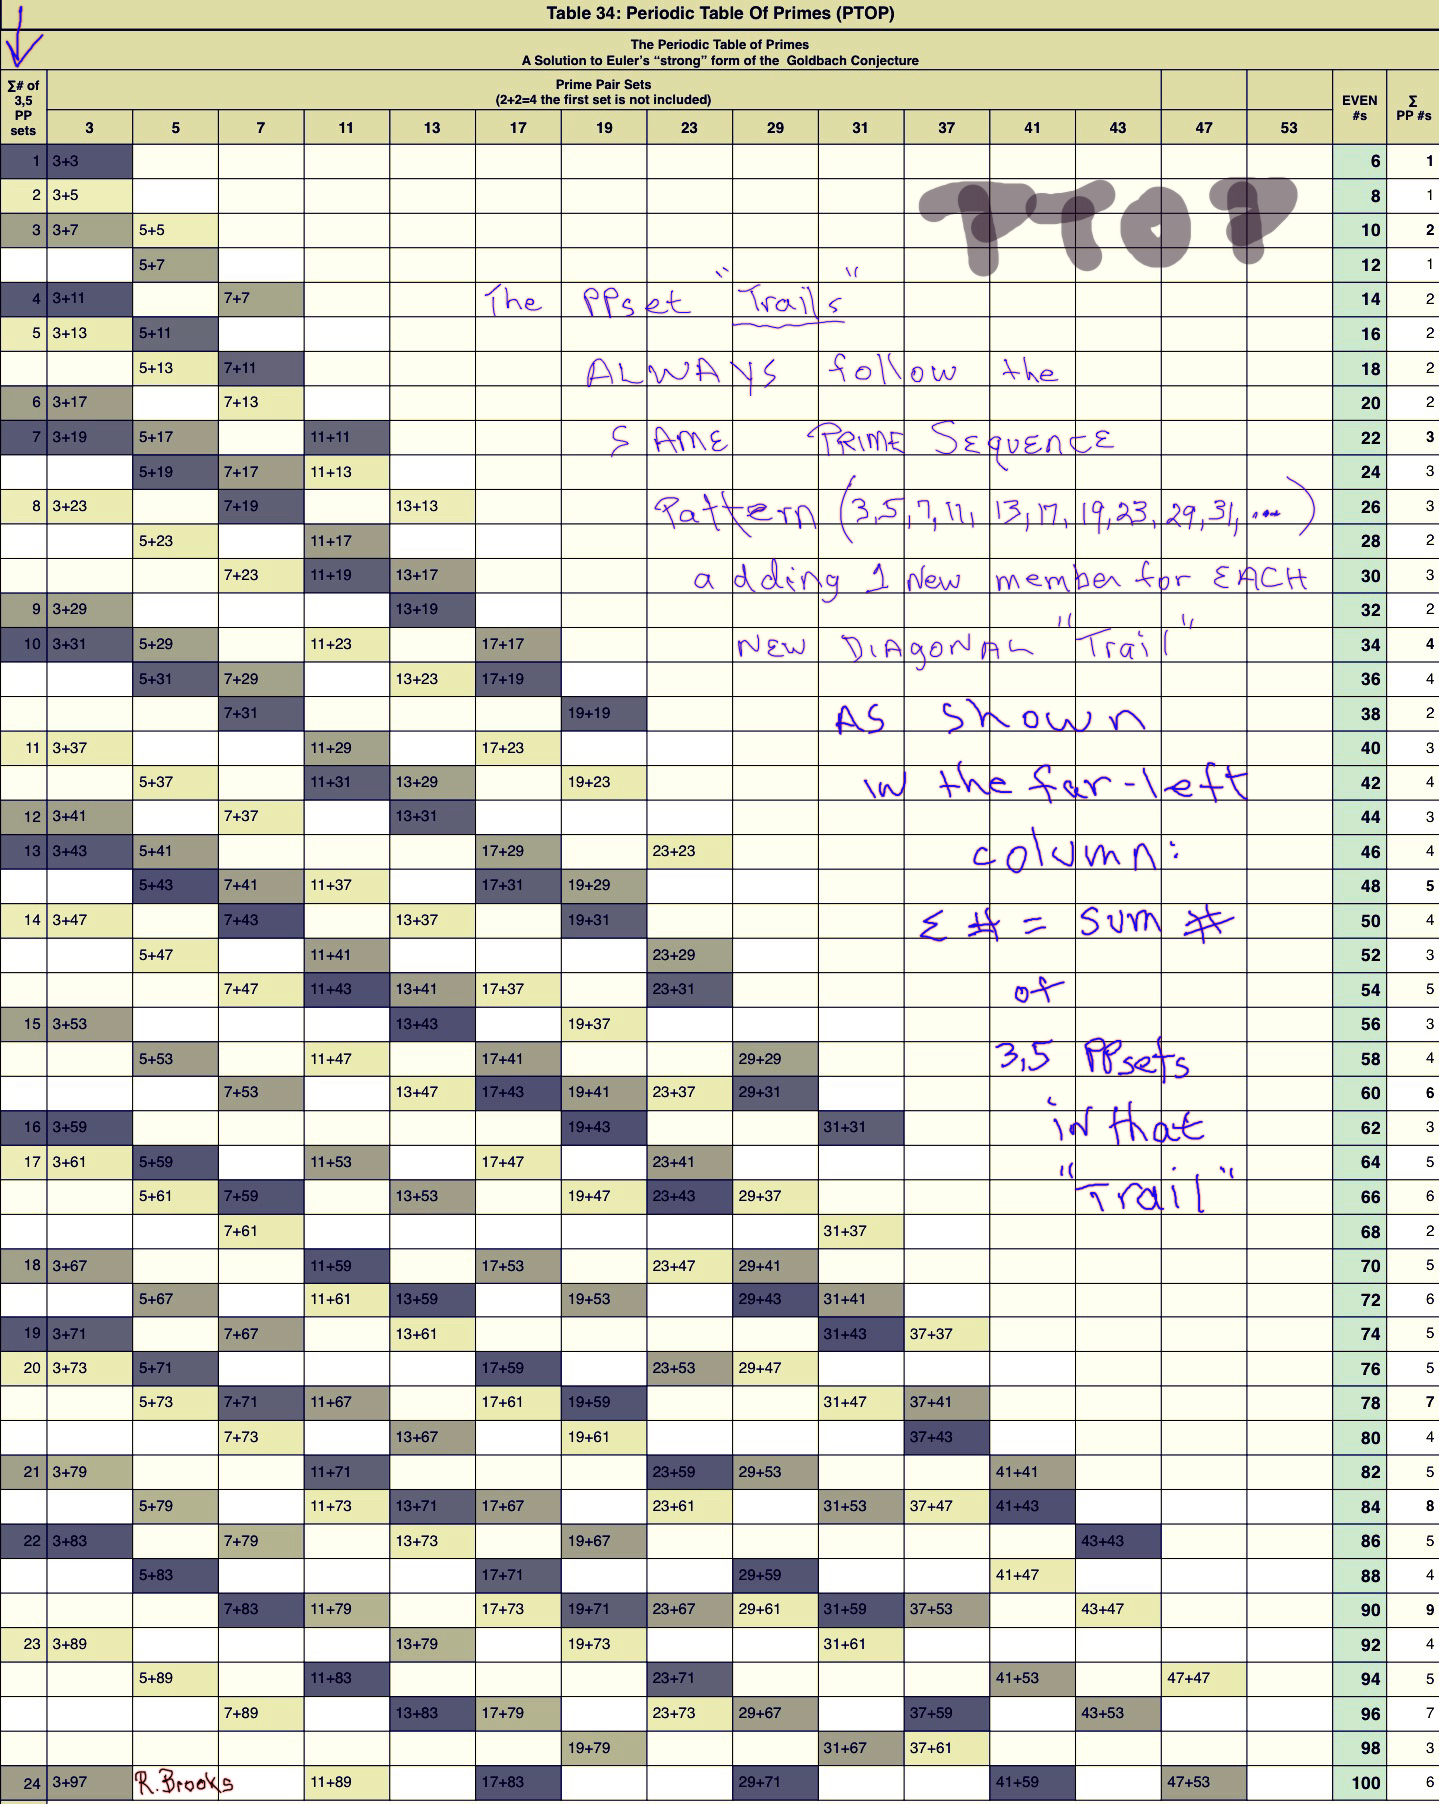 Table 34: Periodic Table Of Primes (PTOP)
The Periodic Table of Primes
A Solution to Euler's “strong” form of the Goldbach Conjecture
Σ# of 3,5 PP sets
Prime Pair Sets
(2+2=4 the first set is not included)
EVEN #s
Σ PP #s
3 5 7 11 13 17 19 23 29 31 37 41 43 47 53
1 3+3 6 1
2 3+5 8 1
PTOP
3 3+7 5+5 10 2
5+7 12 1
4 3+11 7+7 The PPset "Trails" 14 2
5 3+13 5+11 16 2
5+13 7+11 ALWAYS follow the 18 2
6 3+17 7+13 20 2
7 3+19 5+17 11+11 SAME PRIME SEquENCE 22 3
5+19 7+17 11+13 24 3
8 3+23 7+19 13+13 Pattern (3,5,7,11, 13,17, 19,23, 29,31, ....) 26 3
5+23 11+17 28 2
7+23 11+19 13+17 adding 1 New member for EACH 30 3
9 3+29 13+19 32 2
10 3+31 5+29 11+23 17+17 NEW DIAGONAL "Trail" 34 4
5+31 7+29 13+23 17+19 36 4
7+31 19+19 AS shown 38 2
11 3+37 11+29 17+23 40 3
5+37 11+31 13+29 19+23 in the far-left 42 4
12 3+41 7+37 13+31 44 3
13 3+43 5+41 17+29 23+23 column: 46 4
5+43 7+41 11+37 17+31 19+29 48 5
14 3+47 7+43 13+37 19+31 Σ # = SUM # 50 4
5+47 11+41 23+29 52 3
7+47 11+43 13+41 17+37 23+31 of 54 5
15 3+53 13+43 19+37 56 3
5+53 11+47 17+41 29+29 3,5 PPsets 58 4
7+53 13+47 17+43 19+41 23+37 29+31 60 6
16 3+59 19+43 31+31 in that 62 3
17 3+61 5+59 11+53 17+47 23+41 64 5
5+61 7+59 13+53 19+47 23+43 29+37 "Trail" 66 6
7+61 31+37 68 2
18 3+67 11+59 17+53 23+47 29+41 70 5
5+67 11+61 13+59 19+53 29+43 31+41 72 6
19 3+71 7+67 13+61 31+43 37+37 74 5
20 3+73 5+71 17+59 23+53 29+47 76 5
5+73 7+71 11+67 17+61 19+59 31+47 37+41 78 7
7+73 13+67 19+61 37+43 80 4
21 3+79 11+71 23+59 29+53 41+41 82 5
5+79 11+73 13+71 17+67 23+61 31+53 37+47 41+43 84 8
22 3+83 7+79 13+73 19+67 43+43 86 5
5+83 17+71 29+59 41+47 88 4
7+83 11+79 17+73 19+71 23+67 29+61 31+59 37+53 43+47 90 9
23 3+89 13+79 19+73 31+61 92 4
5+89 11+83 23+71 41+53 47+47 94 5
7+89 13+83 17+79 23+73 29+67 37+59 43+53 96 7
19+79 31+67 37+61 98 3
24 3+97 R.Brooks 11+89 17+83 29+71 41+59 47+53 100 6